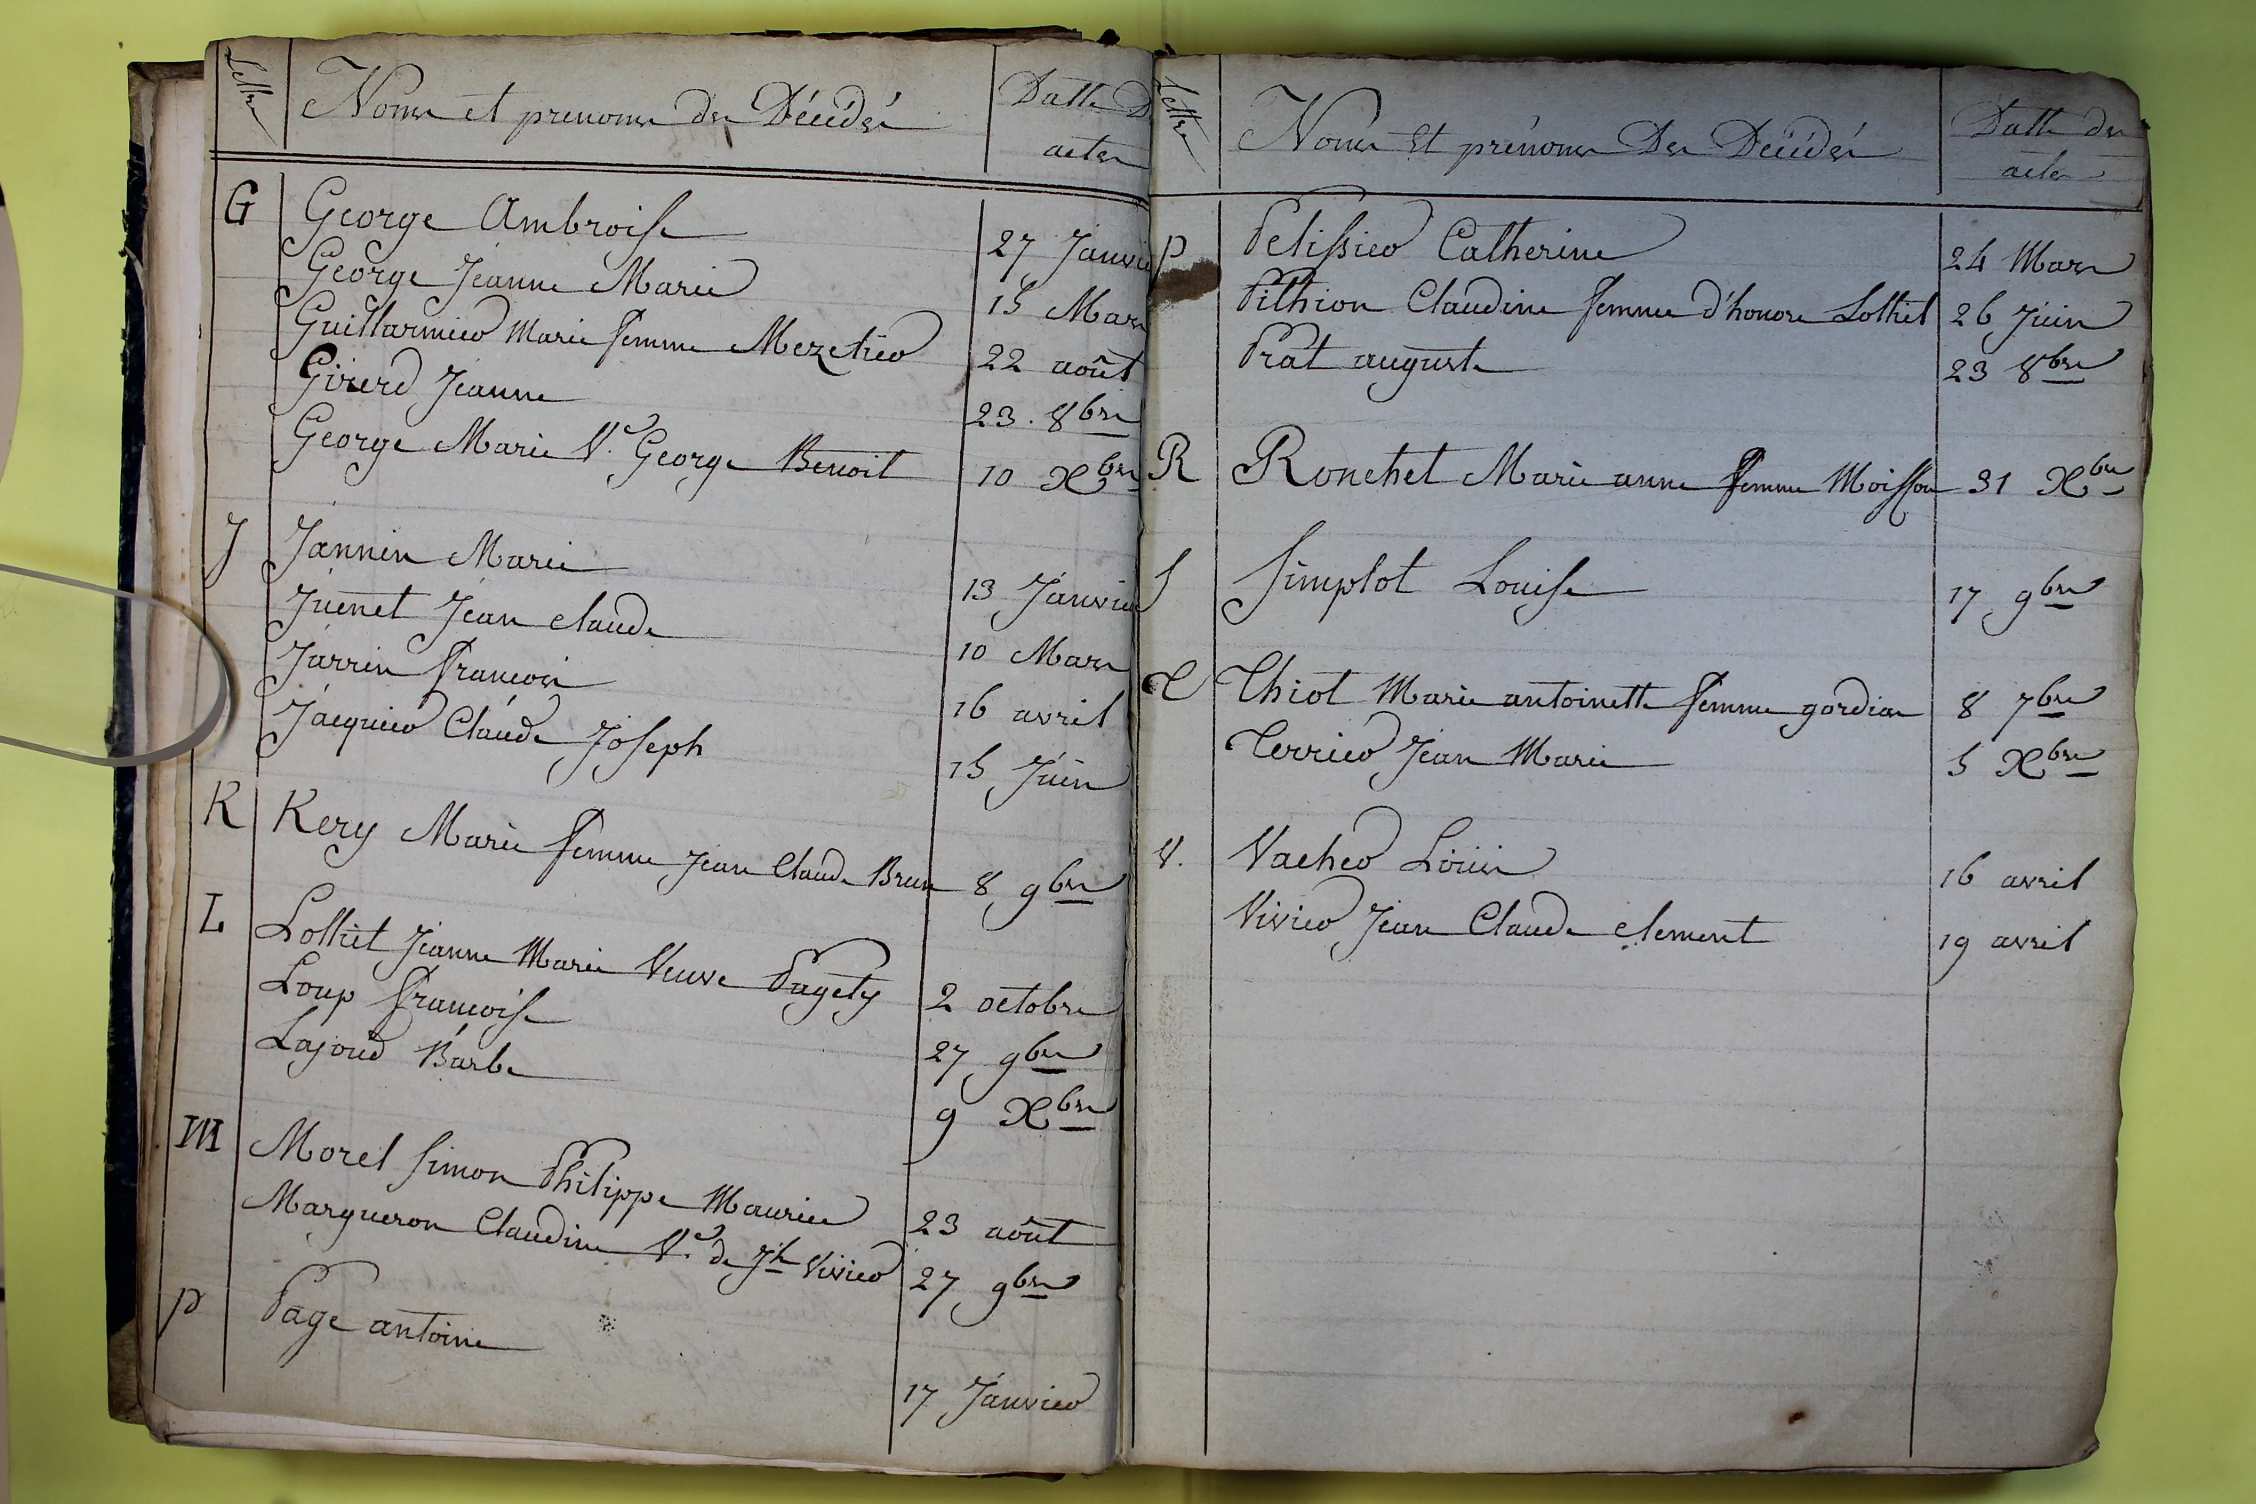 Lettre Noms et prenoms des Décédés Datte D
actes
G George Ambroise 27 Janvie
George Jeanne Marie 15 Mars
Guillarmier Marie femme Mezelier 22 août
Girerd Jeanne 23. 8bre
George Marie Ve. George Benoit 10 Xbre
J Jannin Marie 13 Janvier
Juenet Jean claude 10 Mars
Jarrin francois 16 avril
Jacquier Claude Joseph 15 Juin
K Kery Marie femme Jean Claude Brun 8 9bre
L Lolliet Jeanne Marie Veuve Pagety 2 octobre
Loup francoise 27 9bre
Lajoud Barbe 9 Xbre
M Morel Simon Philippe Maurice 23 août
Margueron Claudine Ve. de Jh Vivier 27 9bre
P Page antoine 17 Janvier
Lettre Noms Et prénoms Des Décédés Datte des
actes
P Pelissier Catherine 24 Mars
Pithion Claudine femme d'honore Lolliet 26 Juin
Prat auguste 23 8bre
R Ronchet Marie anne femme Moisson 31 Xbre
S Simplot Louise 17 9bre
T Thiot Marie antoinette femme gordian 8 7bre
Terrier Jean Marie 5 Xbre
V. Vacher Louis 16 avril
Vivier Jean Claude clement 19 avril